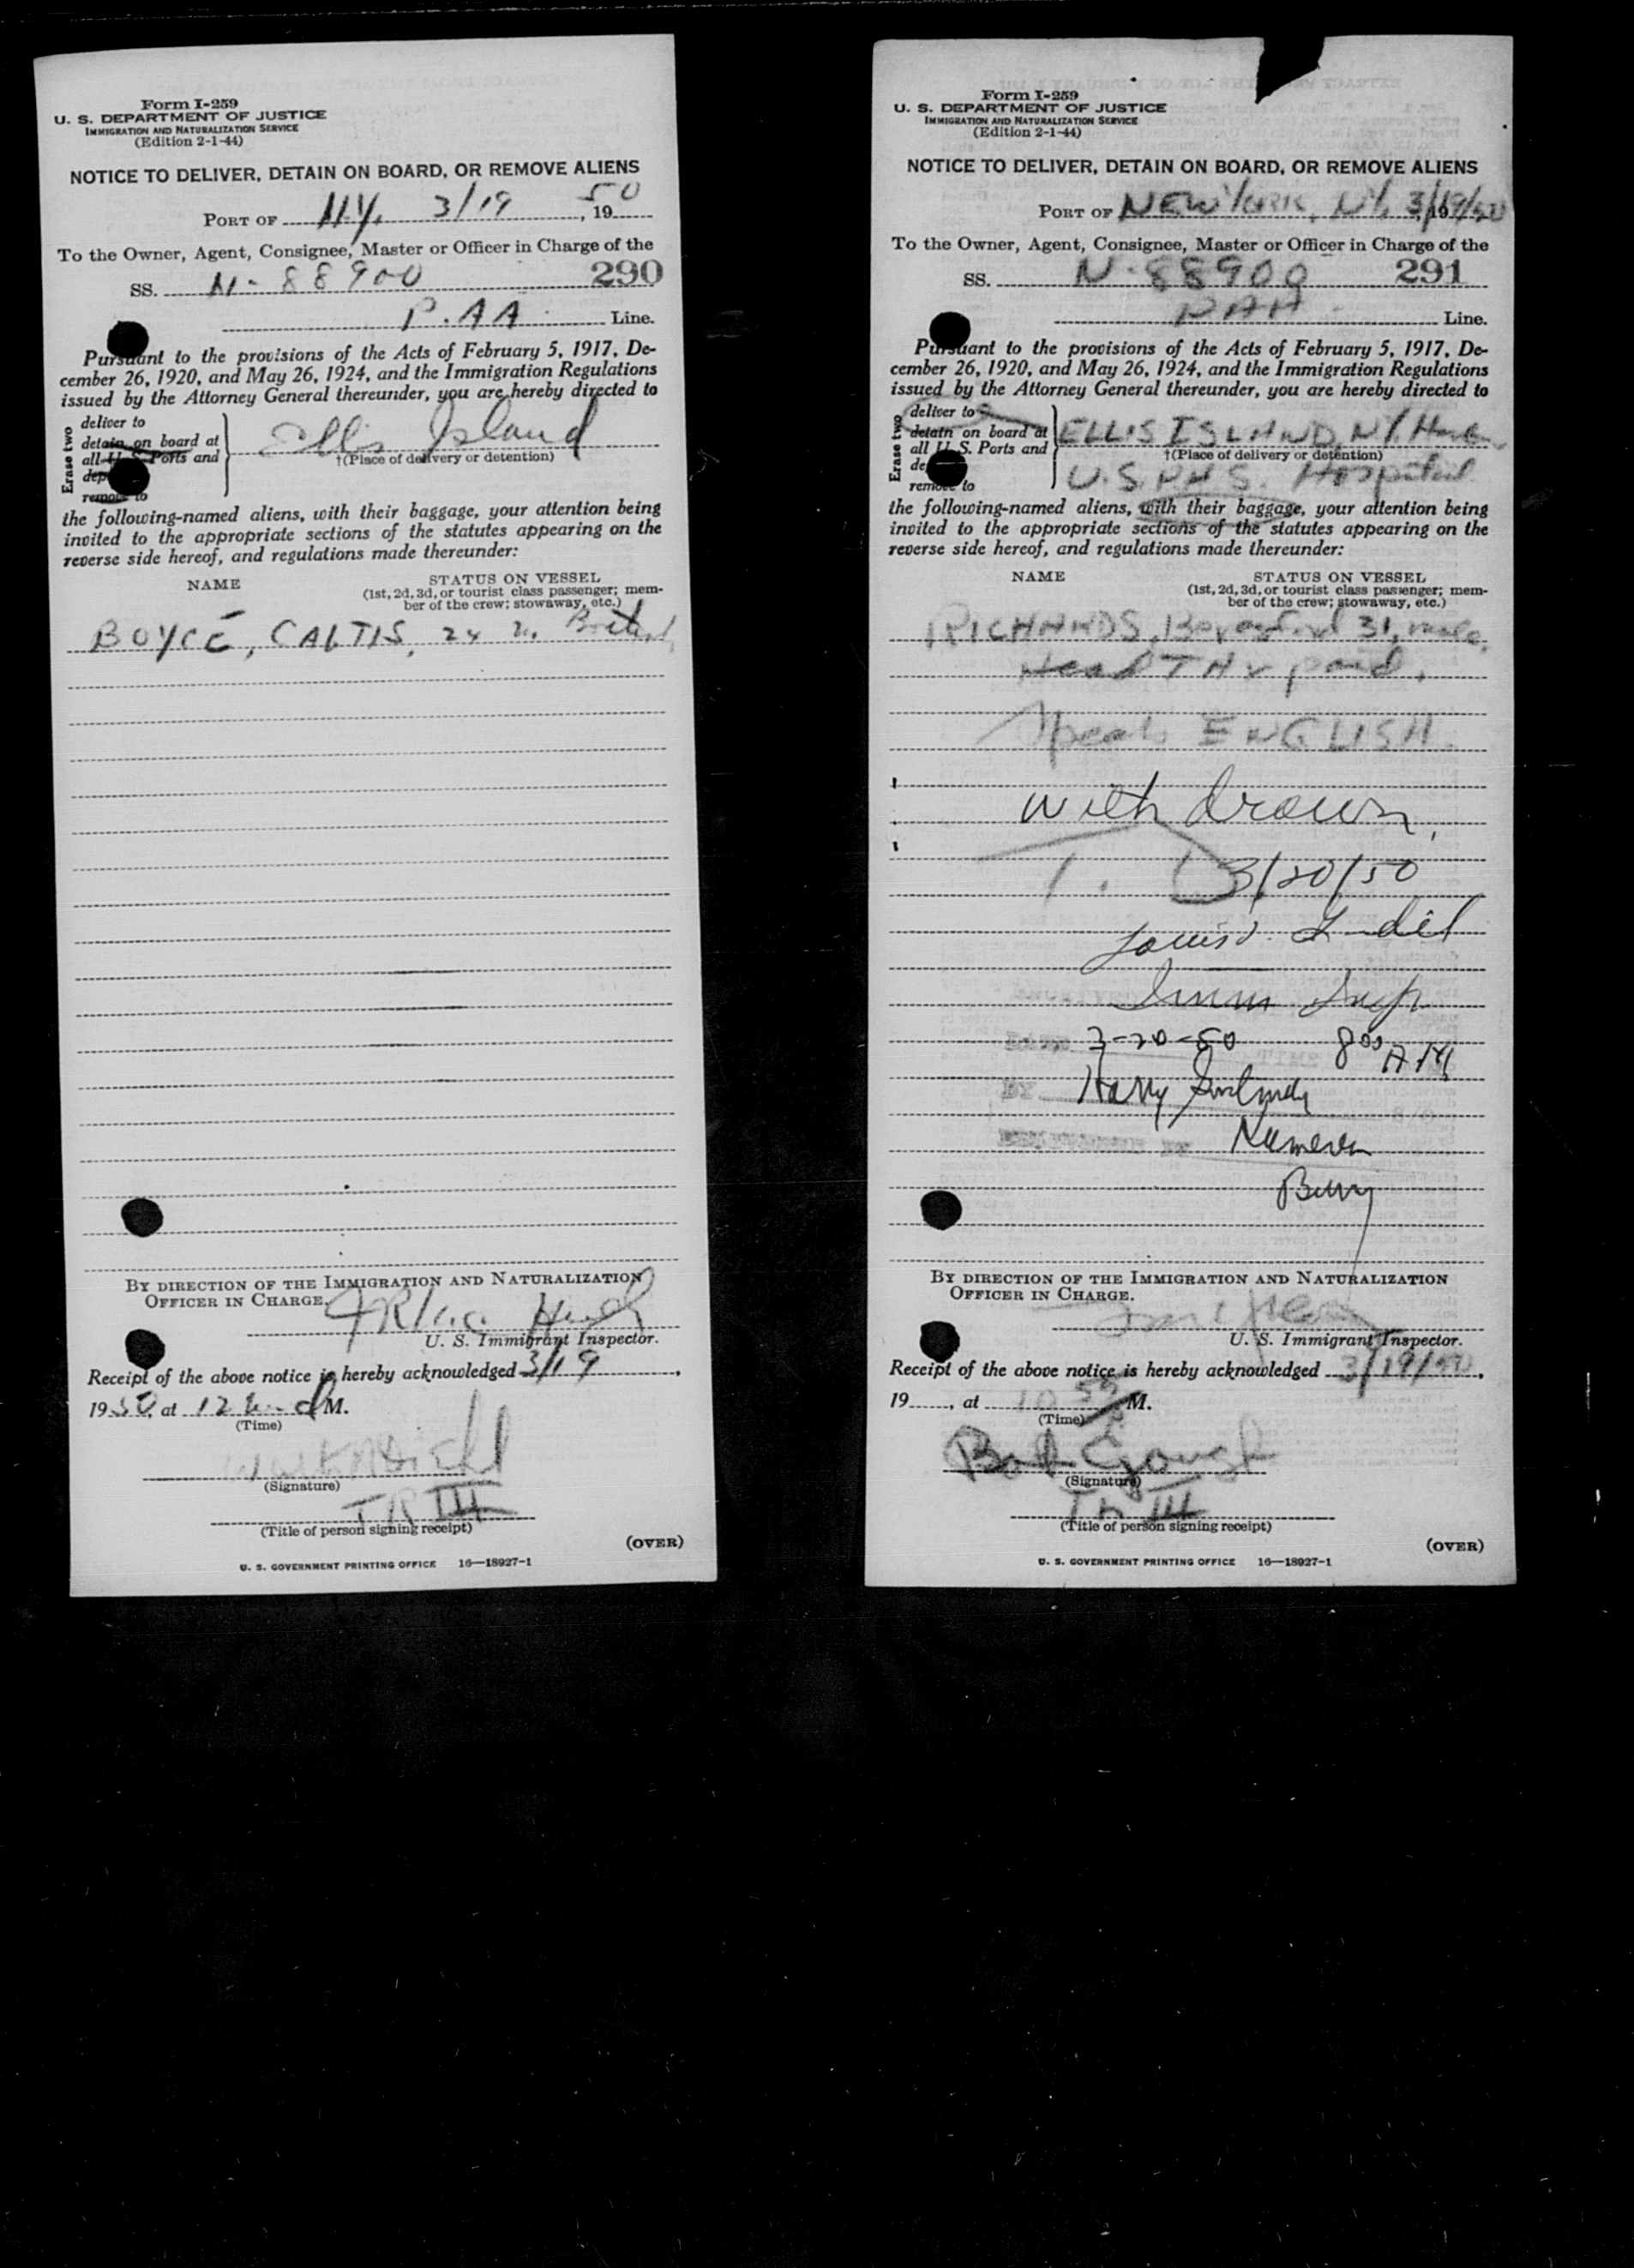 Form I-259
U. S. DEPARTMENT OF JUSTICE
IMMIGRATION AND NATURALIZATION SERVICE
(Edition 2-1-44)
NOTICE TO DELIVER, DETAIN ON BOARD, OR REMOVE ALIENS
PORT OF N.Y. 3/19, 1950
To the Owner, Agent, Consignee, Master or Officer in Charge of the
SS. N-88900 290
P.AA Line.
Pursuant to the provisions of the Acts of February 5, 1917, De-
cember 26, 1920, and May 26, 1924, and the Immigration Regulations
issued by the Attorney General thereunder, you are hereby directed to
Erase two
deliver to
detain on board at
all U. S. Ports and
remove to
Ellis Island
†(Place of delivery or detention)
the following-named aliens, with their baggage, your attention being
invited to the appropriate sections of the statutes appearing on the
reverse side hereof, and regulations made thereunder:
NAME
STATUS ON VESSEL
(1st, 2d, 3d, or tourist class passenger; mem-
ber of the crew; stowaway, etc.)
BOYCE, 24 British
BY DIRECTION OF THE IMMIGRATION AND NATURALIZATION
OFFICER IN CHARGE.
U. S. Immigrant Inspector.
Receipt of the above notice is hereby acknowledged 3/19,
1950, at 12 M.
(Time)
(Signature)
TR III
(Title of person signing receipt)
(OVER)
U. S. GOVERNMENT PRINTING OFFICE 16—18927-1
Form I-259
U. S. DEPARTMENT OF JUSTICE
IMMIGRATION AND NATURALIZATION SERVICE
(Edition 2-1-44)
NOTICE TO DELIVER, DETAIN ON BOARD, OR REMOVE ALIENS
PORT OF NEW YORK, N.Y. 3/19/50
To the Owner, Agent, Consignee, Master or Officer in Charge of the
SS. N-88900 291
PAA Line.
Pursuant to the provisions of the Acts of February 5, 1917, De-
cember 26, 1920, and May 26, 1924, and the Immigration Regulations
issued by the Attorney General thereunder, you are hereby directed to
Erase two
deliver to
detain on board at
all U. S. Ports and
remove to
ELLIS ISLAND, N.Y.
†(Place of delivery or detention)
U.S.P.H.S. Hospital
the following-named aliens, with their baggage, your attention being
invited to the appropriate sections of the statutes appearing on the
reverse side hereof, and regulations made thereunder:
NAME
STATUS ON VESSEL
(1st, 2d, 3d, or tourist class passenger; mem-
ber of the crew; stowaway, etc.)
RICHARDS, 31, male,
Head TAX paid.
Speaks ENGLISH.
withdrawn,
3/20/50
Louis
Imm Insp
3-20-50 8 00 AM
Harry
BY DIRECTION OF THE IMMIGRATION AND NATURALIZATION
OFFICER IN CHARGE.
U. S. Immigrant Inspector.
Receipt of the above notice is hereby acknowledged 3/19/50,
19, at 10 55 M.
(Time)
Bob Gough
(Signature)
TR III
(Title of person signing receipt)
(OVER)
U. S. GOVERNMENT PRINTING OFFICE 16—18927-1